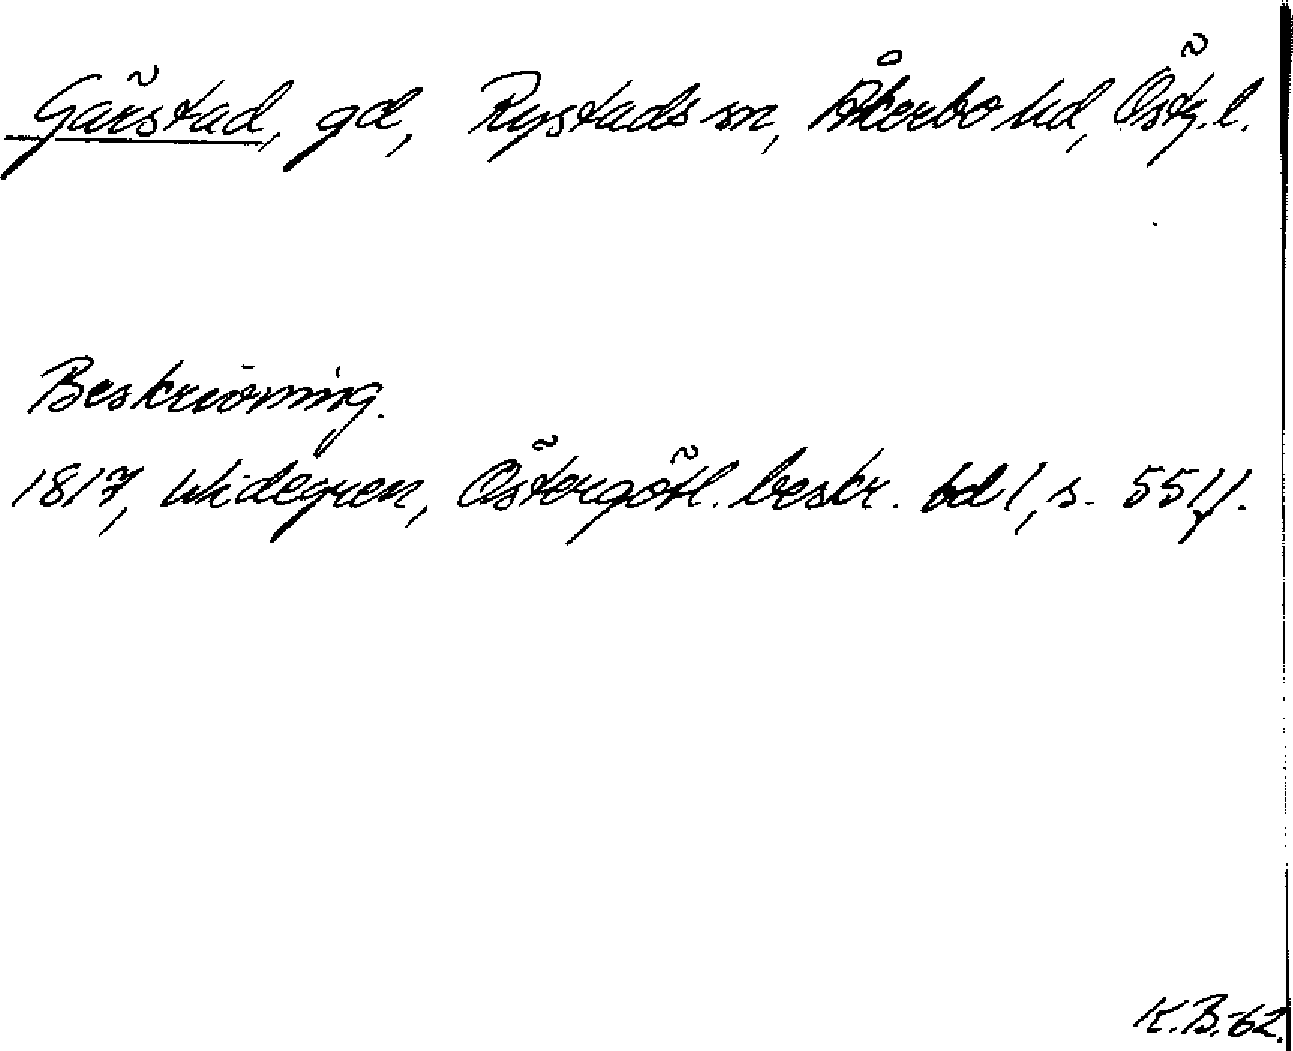 Gärstad, gd, Rystads sn, Åkerbo hd, Östg.l.
Beskrivning.
1817, Widegren, Östergötl. beskr. bd 1, s. 551f.
K.B.-62.